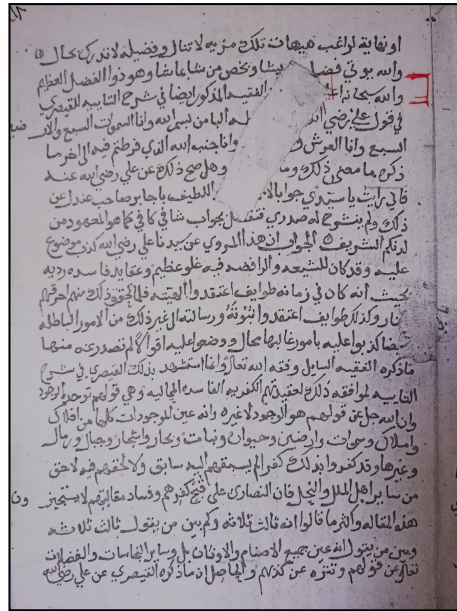 او نهاية لراغب هيهات تلك مزية لا تنال وفضيلة لا تدرك بحال
والله يوتي فضله من يشا ويخص من شا بما شا وهو ذو الفضل العظيم
والله سبحانه اعلم الفقيه المذكور ايضا في شرح التايية للقيصري
في قول علي رضي الله البا من بسم الله وانا السموات السبع والارضين
السبع وانا العرش وانا جنب الله الذي فرطتم فيه الى اخر ما
ذكره ما معنى ذلك وما وهل صح ذلك عن علي رضي الله عنه
فاني رايت يا سيدي جوابا اللطيف يا جابر صاحب عدل عن
ذلك ولم ينشرح له صدري فتفضل بجواب شافي كافي كما هو المعهود من
لدنكم الشريف الجواب ان هذا المروي عن سيدنا علي رضي الله كذب موضوع
عليه وقد كان للشيعة والرافضة فيه غلو عظيم وعقايد فاسدة ردية
بحيث انه كان في زمانه طوايف اعتقدوا الهيته فلما تحقق ذلك منهم احرقهم
بالنار وكذلك طوايف اعتقدوا نبوته ورسالته الى غير ذلك من الامور الباطلة
ايضا كذبوا عليه بامور غالبها محال ووضعوا عليه اقوالا لم تصدر عنه منها
ما ذكره الفقيه السايل وفقه الله تعالى وانما استشهد بذلك القيصري في شرح
التايية لموافقة ذلك لعقيدتهم الكفرية الفاسدة المحالية وهي قولهم توحد الوجود
وان الله جل عن قولهم هو الوجود لا غيره وانه عين الموجودات كلها من افلاك
واملاك وسموات وارضين وحيوان ونبات وبحار واشجار وجبال ورمال
وغيرها وقد كفروا بذلك كفرا لم يسبقهم اليه سابق ولا لحقهم فيه لاحق
من ساير اهل الملل والنحل فان النصارى على قبح كفرهم وفساد مقالتهم لا يستجيز
هذه المقالة واكثر ما قالوا انه ثالث ثلاثة وكم بين من يقول ثالث ثلاثة
وبين من يقول انه عين جميع الاصنام والاوثان بل وساير النجاسات والفضلات
تعالى عن قولهم وتنزه عن كذبهم والحاصل ان ما ذكره القيصري عن علي رضي الله